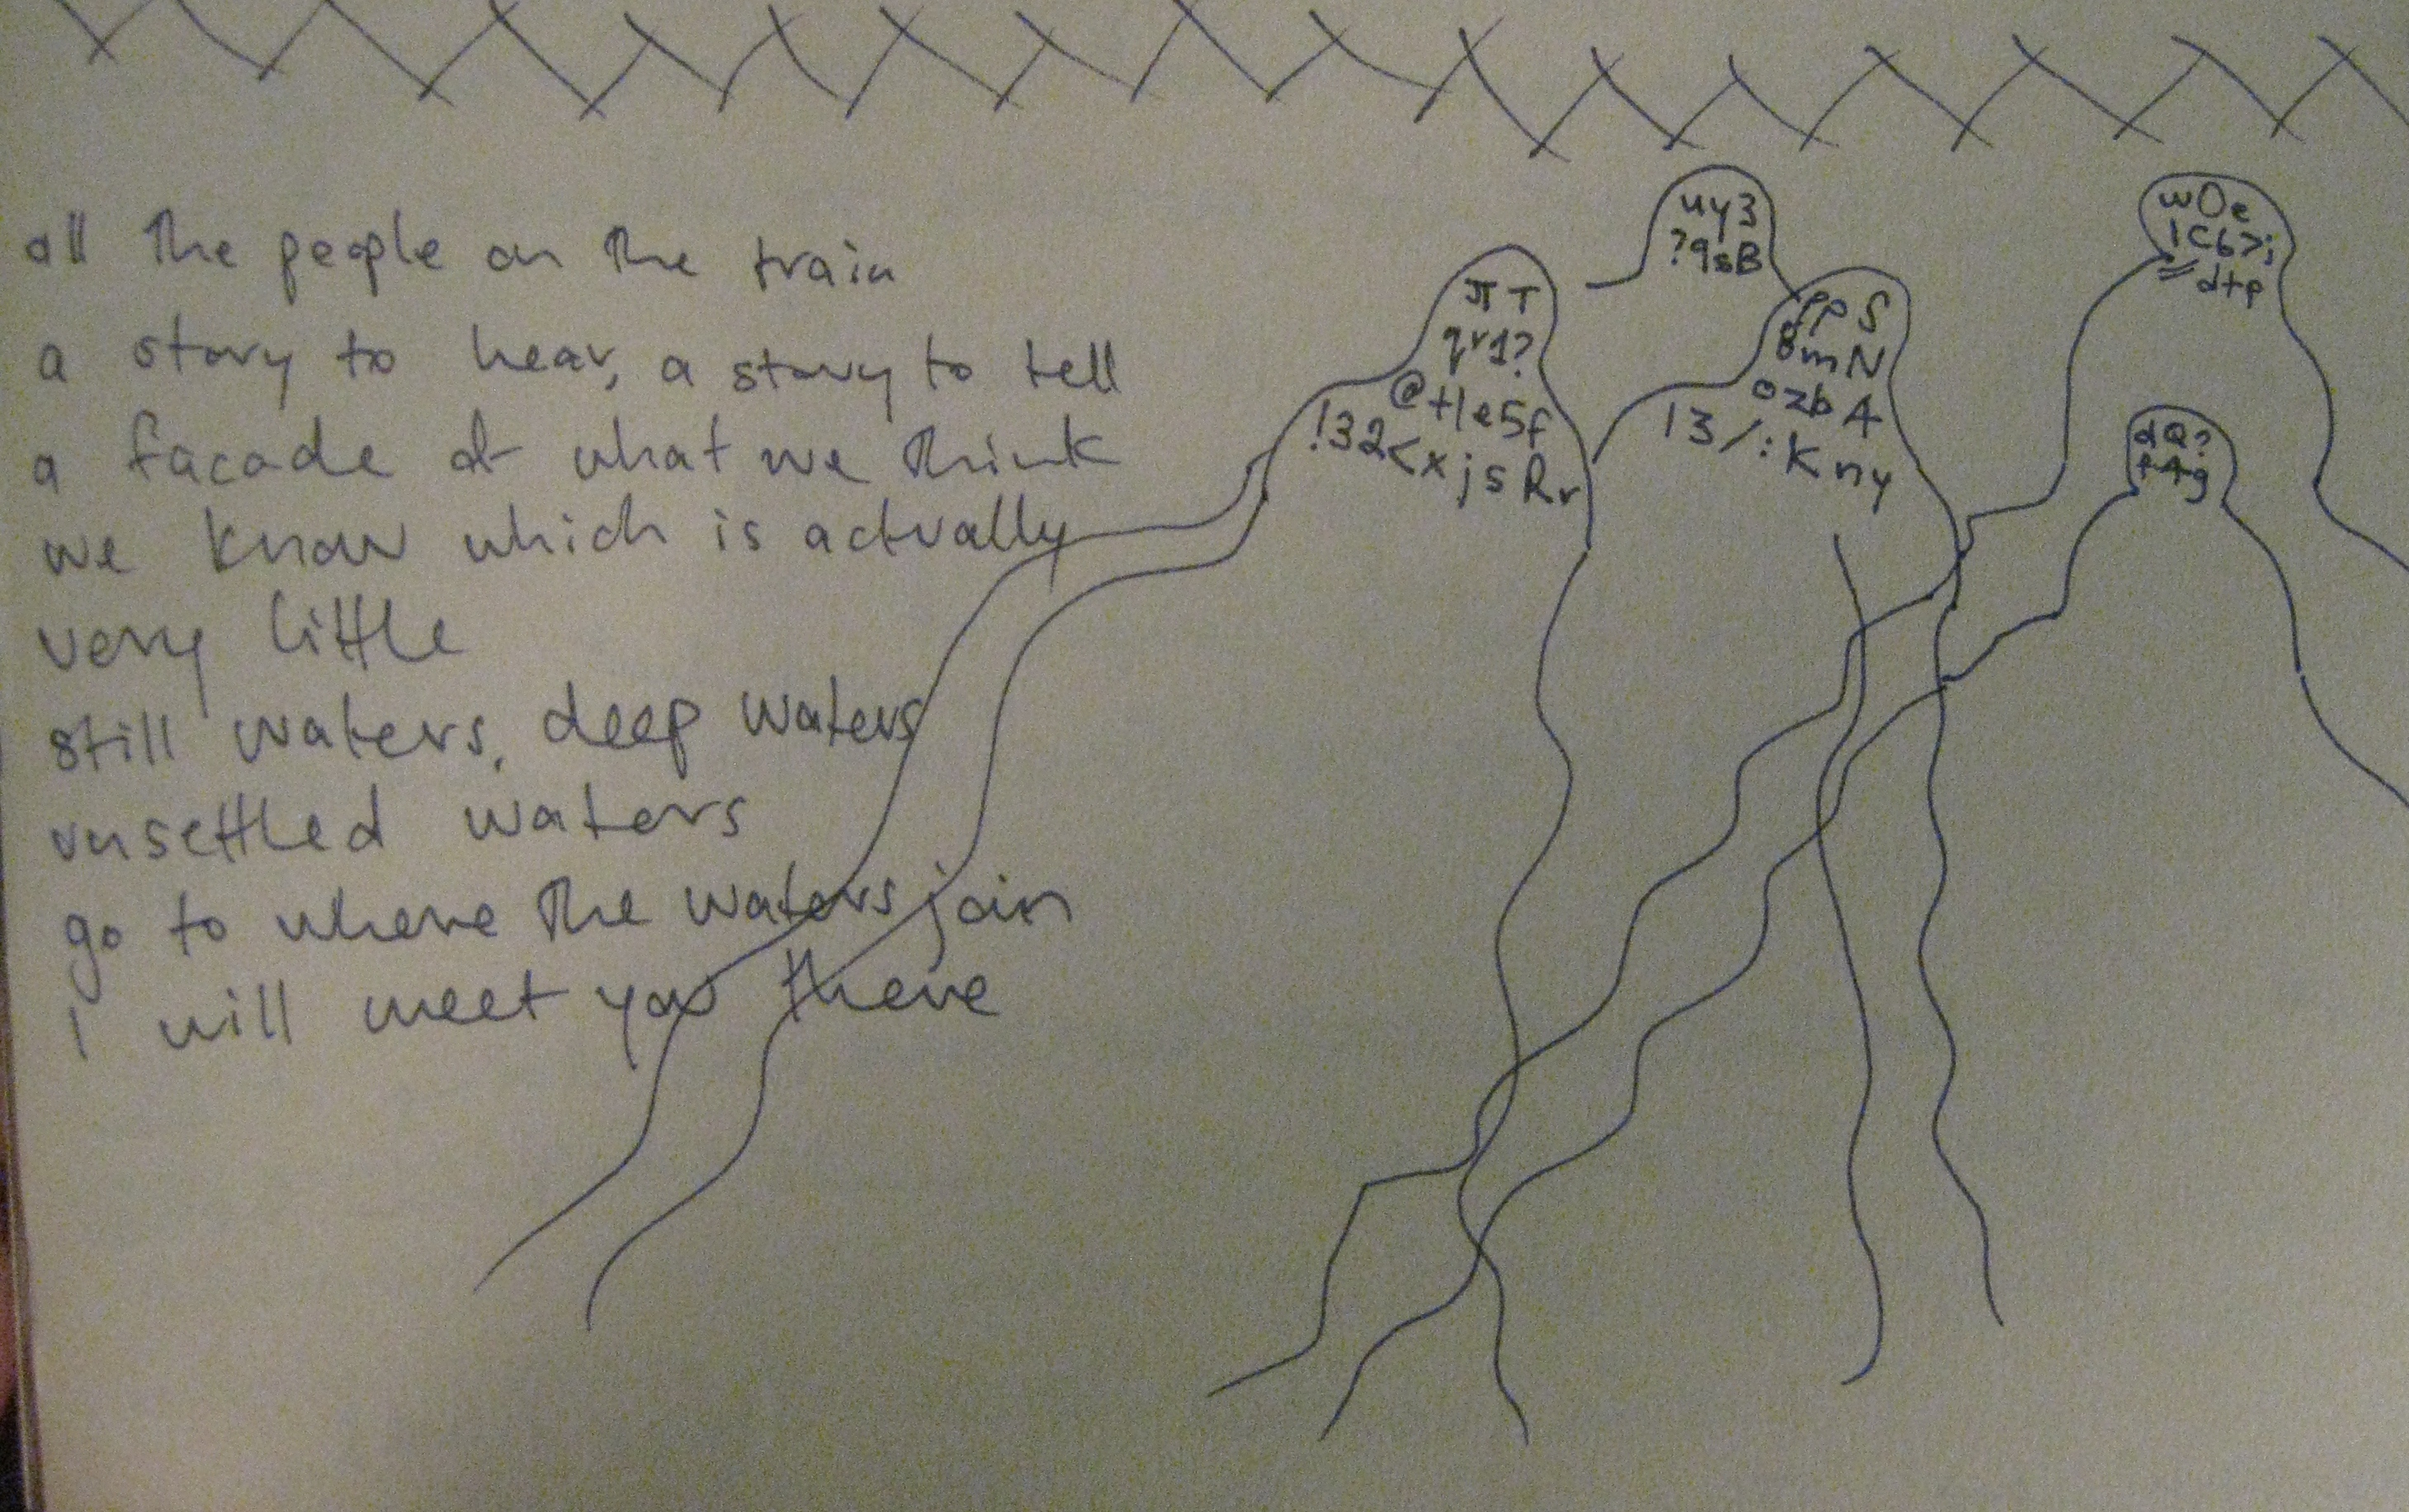 all the people on the train
a story to hear, a story to tell
a facade of what we think
we know which is actually
very little
still waters, deep waters
unsettled waters
go to where the waters join
I will meet you there
uy3
?9sB
πT
qr1?
@tle5f
!32<xjsRr
ppS
8mN
ozbA
13/:Kny
wOe
1C67;
dtp
dQ?
t4g